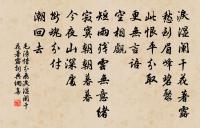 淚濕闌干花著露
愁到眉峰碧聚
此恨平分取
更無言語
空相覷
短雨殘雲無意緒
寂寞朝朝暮暮
今夜山深處
斷魂分付
潮回去
毛滂惜分飛淚濕闌干
花著露詞典網集